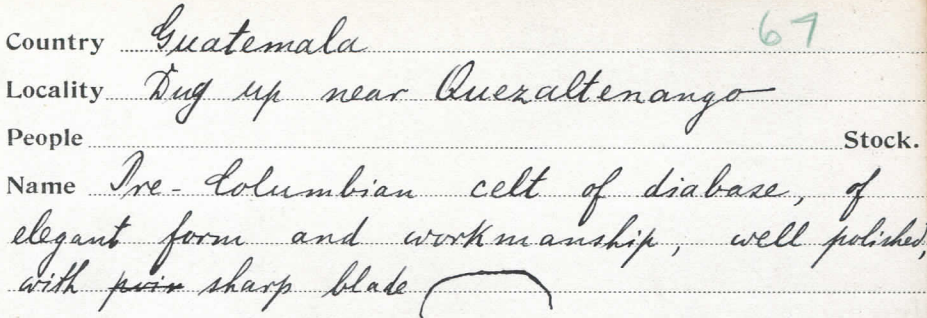 Country Guatemala 67
Locality Dug up near Quezaltenango
People Stock.
Name Pre-Columbian celt of diabase, of
elegant form and workmanship, well polished,
with sharp blade